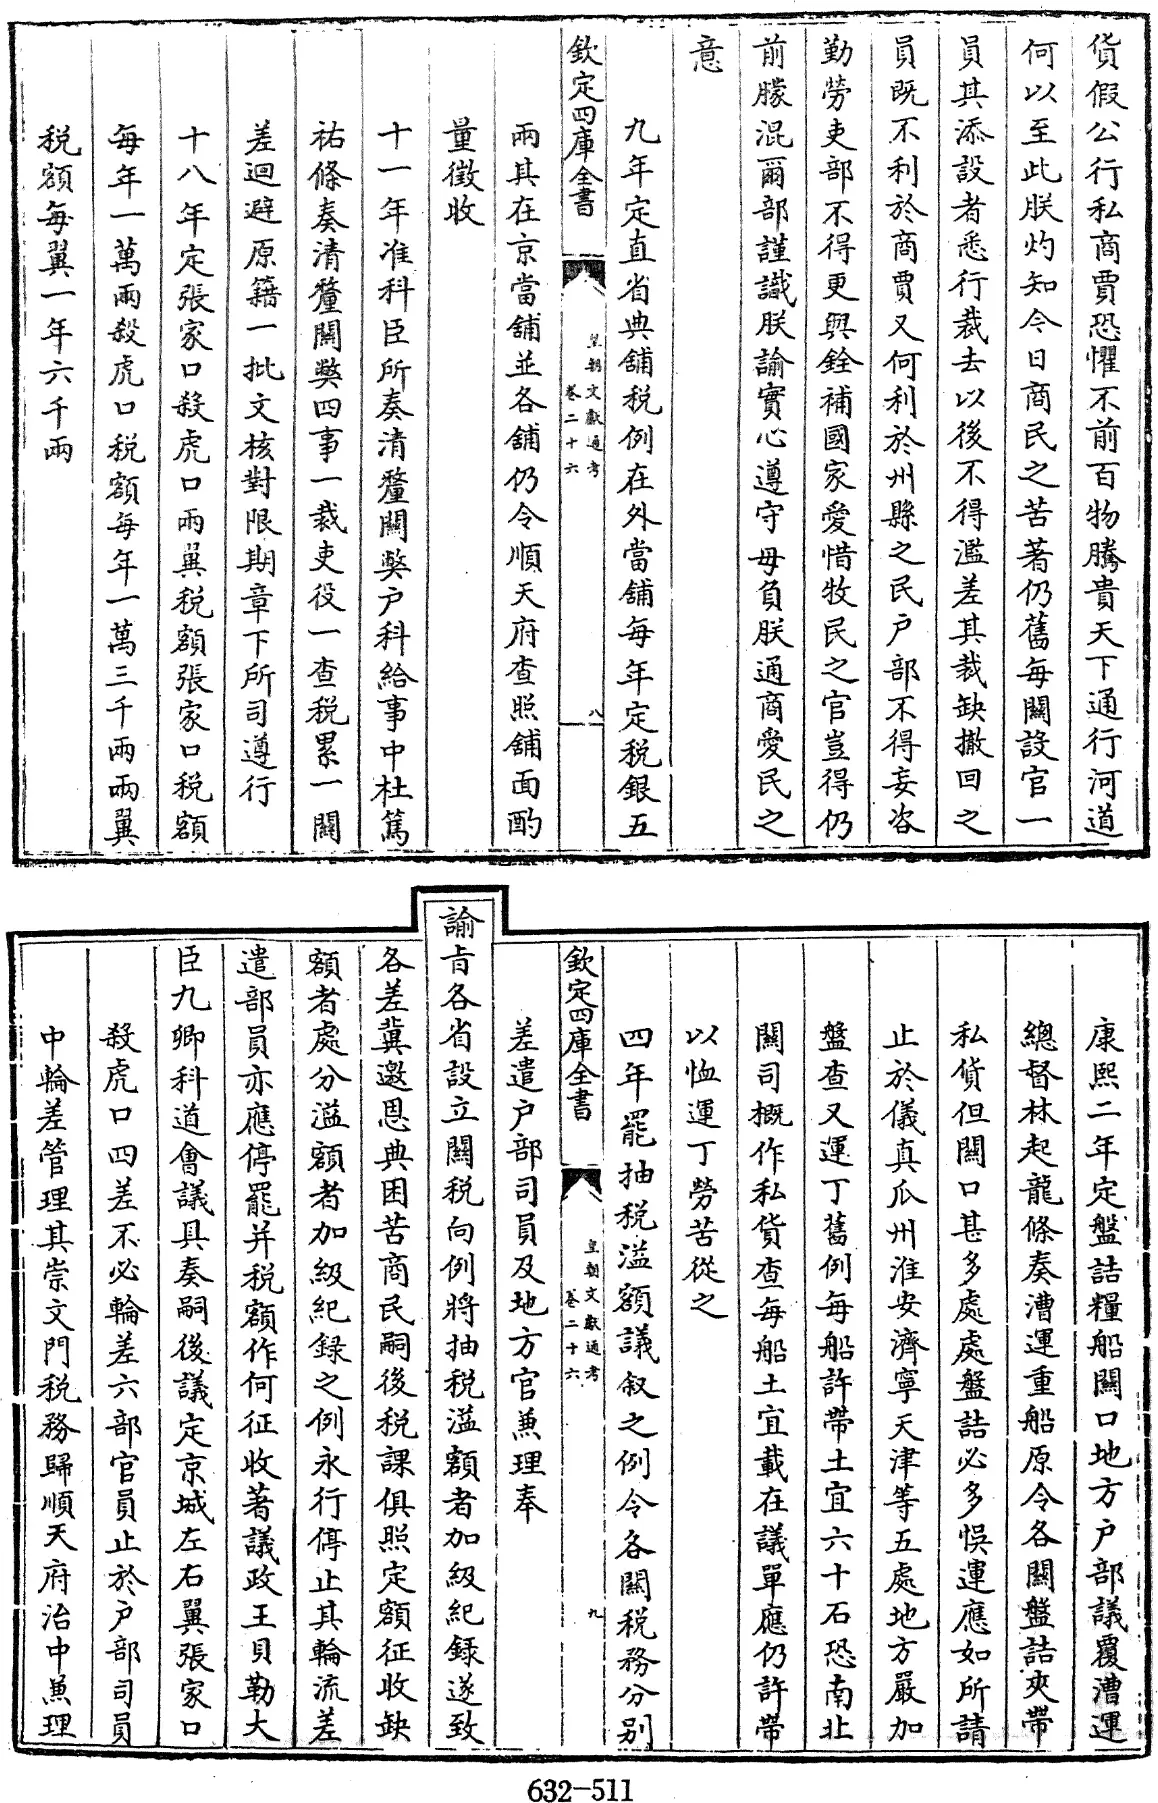 貨假公行私商賈恐懼不前百物騰貴天下通行河道
何以至此朕灼知今日商民之苦著仍舊每關設官一
員其添設者悉行裁去以後不得濫差其裁缺撤回之
員既不利於商賈又何利於州縣之民户部不得妄咨
勤勞吏部不得更與銓補國家愛惜牧民之官豈得仍
前朦混爾部謹識朕諭實心遵守毋負朕通商愛民之
意
九年定直省典舖税例在外當舖每年定税銀五
欽定四庫全書
皇朝文獻通考
卷二十六
八
兩其在京當舖並各舖仍令順天府查照舖面酌
量徵收
十一年准科臣所奏清釐關獘户科給事中杜篤
祐條奏清釐關獘四事一裁吏役一查税累一關
差迴避原籍一批文核對限期章下所司遵行
十八年定張家口殺虎口兩翼税額張家口税額
每年一萬兩殺虎口税額每年一萬三千兩兩翼
税額每翼一年六千兩
康熙二年定盤詰糧船關口地方户部議覆漕運
總督林起龍條奏漕運重船原令各關盤詰夾帶
私貨但關口甚多處處盤詰必多悞運應如所請
止於儀真瓜州淮安濟寧天津等五處地方嚴加
盤查又運丁舊例每船許帶土宜六十石恐南北
關司概作私貨查每船土宜載在議單應仍許帶
以恤運丁勞苦從之
四年罷抽税溢額議叙之例令各關税務分别
欽定四庫全書
皇朝文獻通考
卷二十六
九
差遣户部司員及地方官兼理奉
諭㫖各省設立關税向例將抽税溢額者加級紀録遂致
各差冀邀恩典困苦商民嗣後税課俱照定額征收缺
額者處分溢額者加級紀録之例永行停止其輪流差
遣部員亦應停罷并税額作何征收著議政王貝勒大
臣九卿科道會議具奏嗣後議定京城左右翼張家口
殺虎口四差不必輪差六部官員止於户部司員
中輪差管理其崇文門税務歸順天府治中兼理
632-511